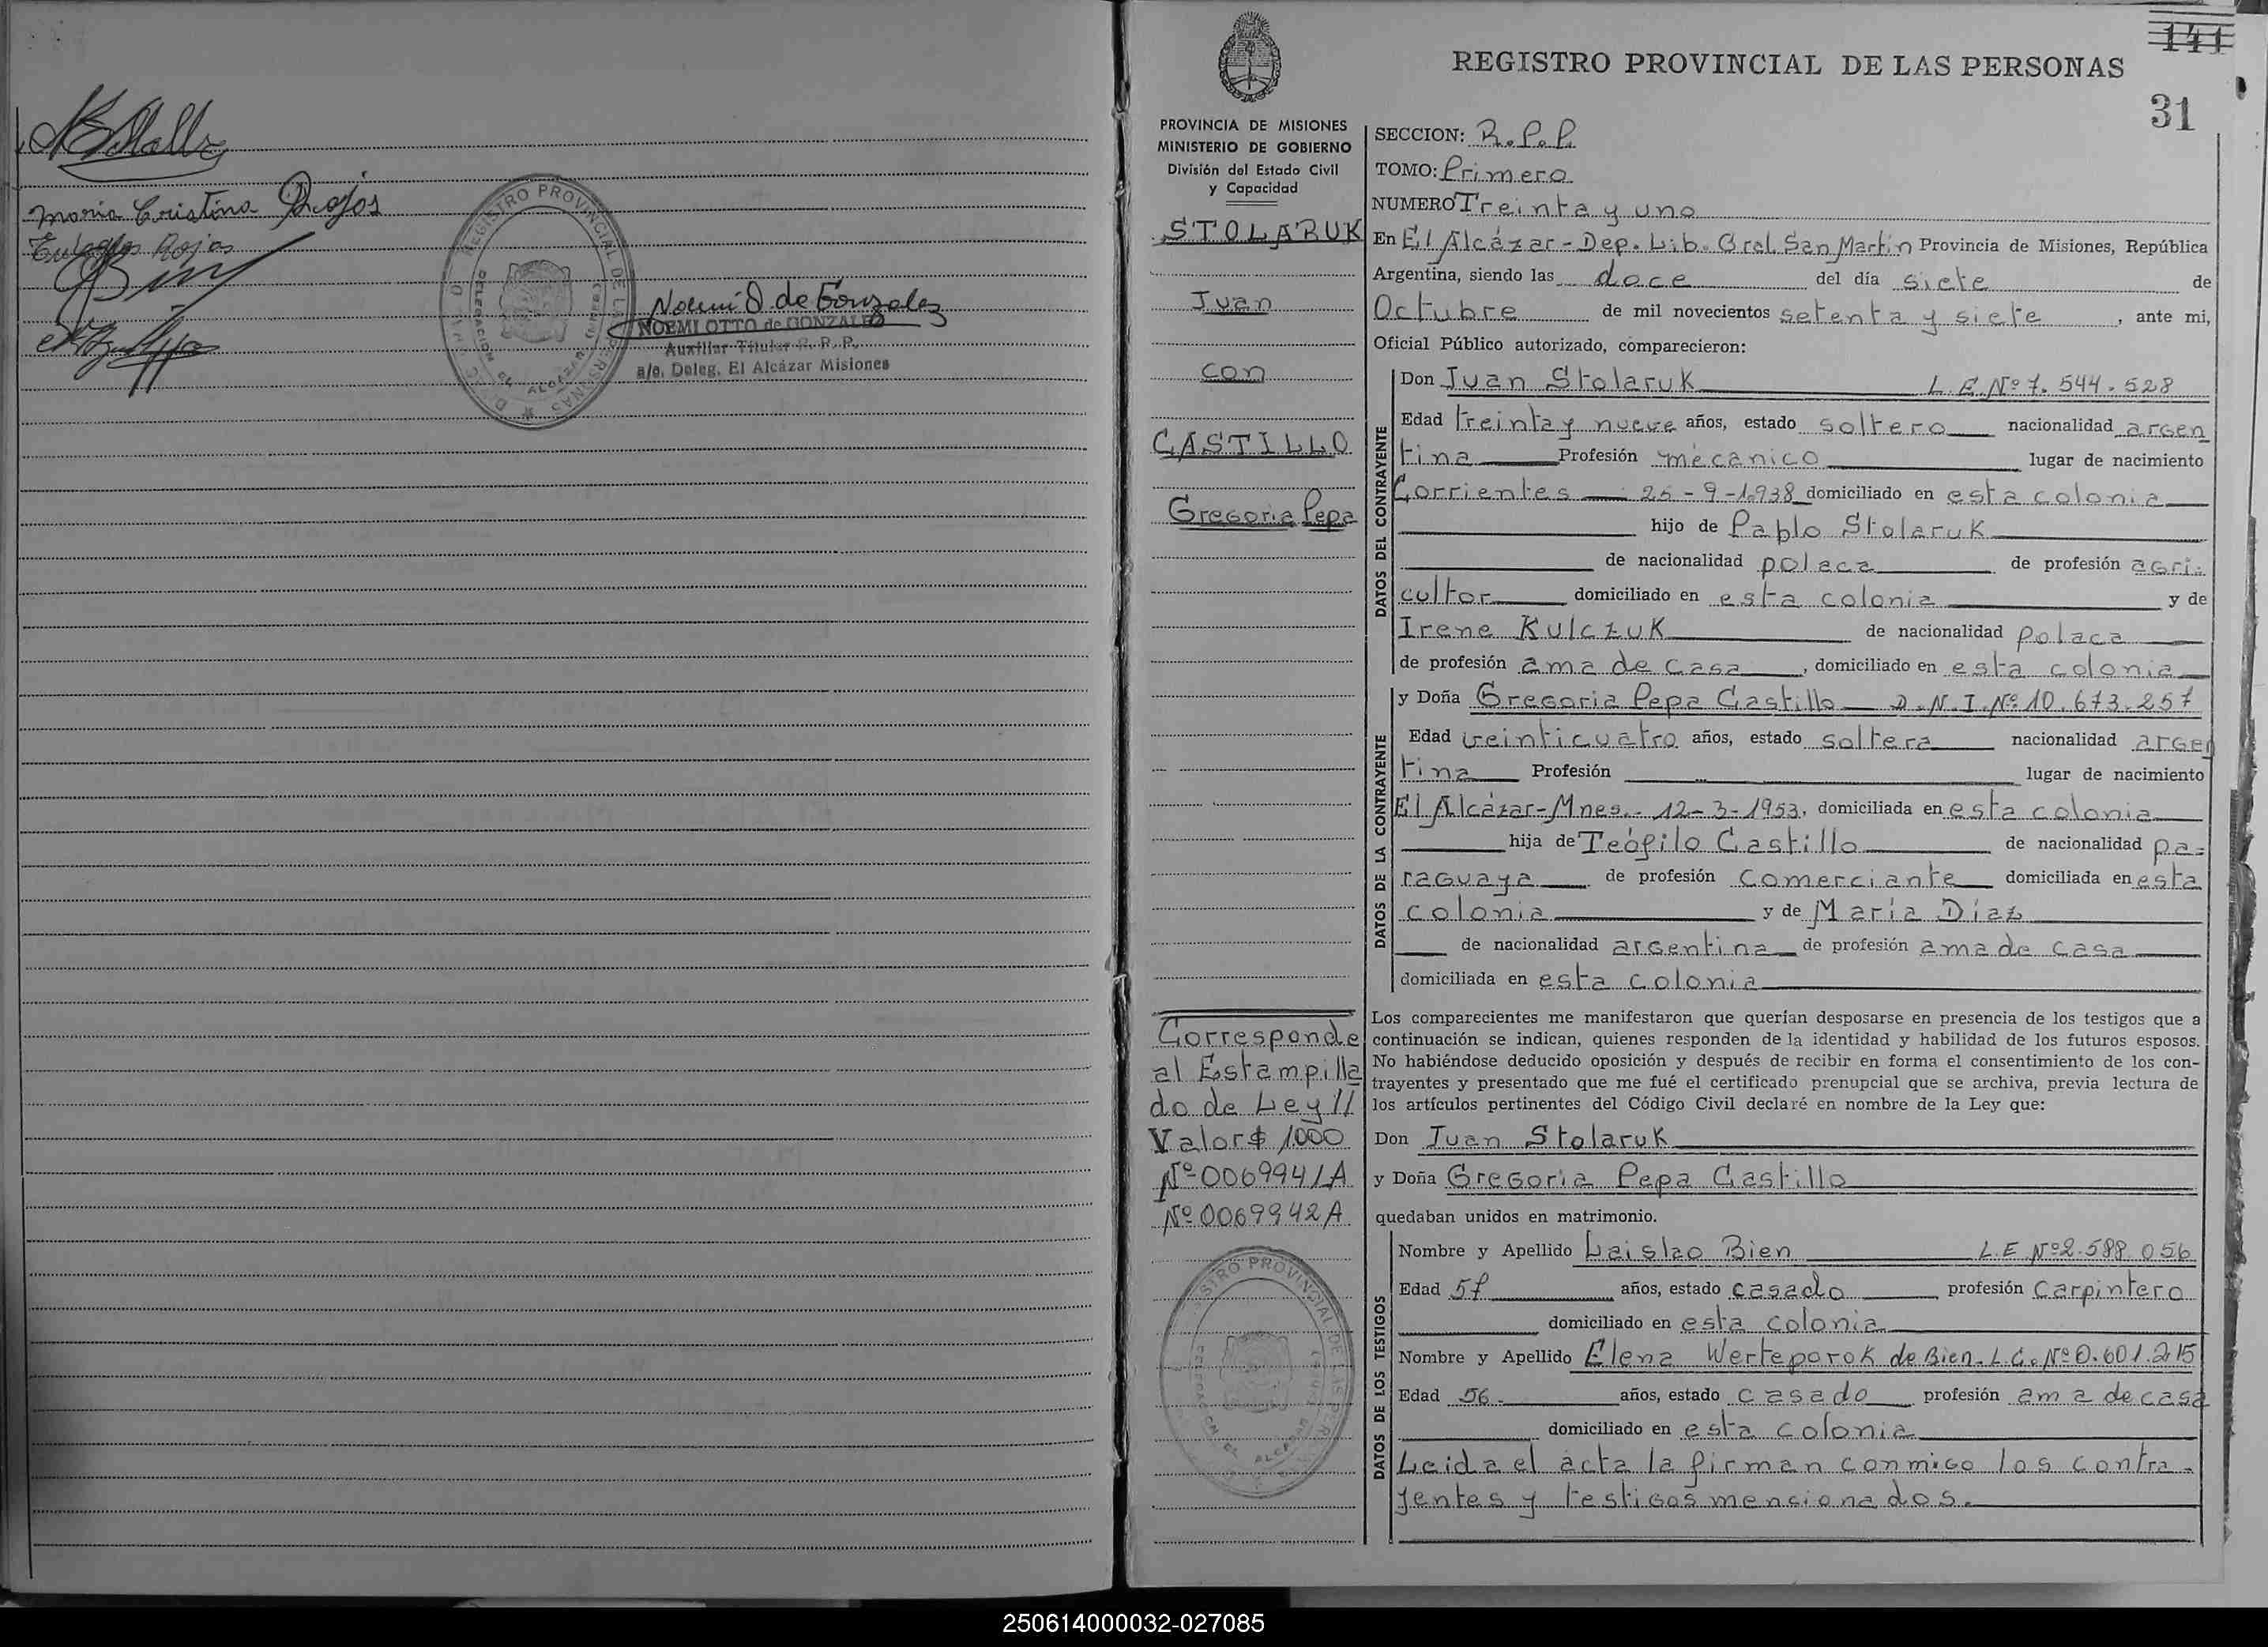 Maria Cristina Rojos
Rojas
REGISTRO PROVINCIAL DE LAS PERSONAS
DELEGACION EL ALCAZAR
Noemi O de Gonzalez
NOEMI OTTO de GONZALEZ
Auxiliar Titular R. P. P.
a/c. Deleg. El Alcázar Misiones
141
REGISTRO PROVINCIAL DE LAS PERSONAS
31
PROVINCIA DE MISIONES
MINISTERIO DE GOBIERNO
División del Estado Civil
y Capacidad
STOLARUK
Juan
con
CASTILLO
Gregoria Pepa
Corresponde
al Estampilla
do de Ley 11
Valor $ 1000
Nº 0069941A
Nº 0069942A
REGISTRO PROVINCIAL DE LAS PERSONAS
DELEGACION EL ALCAZAR
SECCION: R.P.P.
TOMO: Primero
NUMERO Treinta y uno
En El Alcázar - Dep. Lib. Gral. San Martín Provincia de Misiones, República
Argentina, siendo las doce del día siete de
Octubre de mil novecientos setenta y siete, ante mi,
Oficial Público autorizado, comparecieron:
DATOS DEL CONTRAYENTE
Don Juan Stolaruk L.E.Nº 7.544.528
Edad treinta y nueve años, estado soltero nacionalidad argen
tina Profesión mecanico lugar de nacimiento
Corrientes 25-9-1938 domiciliado en esta colonia
hijo de Pablo Stolaruk
de nacionalidad polaca de profesión agri-
cultor domiciliado en esta colonia y de
Irene Kulczuk de nacionalidad polaca
de profesión ama de casa, domiciliado en esta colonia
DATOS DE LA CONTRAYENTE
y Doña Gregoria Pepa Castillo D.N.I.Nº 10.673.257
Edad veinticuatro años, estado soltera nacionalidad argen
tina Profesión lugar de nacimiento
El Alcázar-Mnes.- 12-3-1953, domiciliada en esta colonia
hija de Teófilo Castillo de nacionalidad pa-
raguaya de profesión comerciante domiciliada en esta
colonia y de María Díaz
de nacionalidad argentina de profesión ama de casa
domiciliada en esta colonia
Los comparecientes me manifestaron que querían desposarse en presencia de los testigos que a
continuación se indican, quienes responden de la identidad y habilidad de los futuros esposos.
No habiéndose deducido oposición y después de recibir en forma el consentimiento de los con-
trayentes y presentado que me fué el certificado prenupcial que se archiva, previa lectura de
los artículos pertinentes del Código Civil declaré en nombre de la Ley que:
Don Juan Stolaruk
y Doña Gregoria Pepa Castillo
quedaban unidos en matrimonio.
DATOS DE LOS TESTIGOS
Nombre y Apellido Laislao Bien L.E Nº 2.588.056
Edad 57 años, estado casado profesión Carpintero
domiciliado en esta colonia
Nombre y Apellido Elena Werteporok de Bien. L.C. Nº 0.601.215
Edad 56. años, estado casado profesión ama de casa
domiciliado en esta colonia
Leida el acta la firman conmigo los contra-
yentes y testigos mensionados.
250614000032-027085